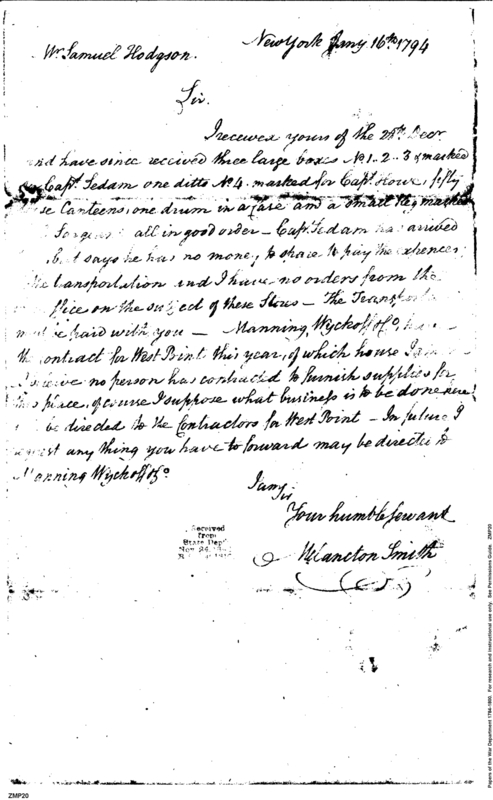 New York Jany. 16th 1794
Mr. Samuel Hodgson.
Sir.
I received yours of the 28th. Decr.
and have since received three large boxes No 1..2..3 & marked
Capt. Sedam one ditto No 4. marked for Capt. Howe, fifty
Canteens, one drum in a Case and a small keg marked
all in good order – Capt. Sedam has arrived
but says he has no money to spare to pay the expences
the transportation and I have no orders from the
office on the subject of these Stores – The Transport
must be paid with you – Manning, Wyckoff & Co. have
the contract for West Point this year, of which house I am
no person has contracted to furnish supplies for
this place, of course I suppose what business is to be done here
be directed to the Contractors for West Point – In future I
request any thing you have to forward may be directed to
Manning Wyckoff & Co.
I am
Sir
Your humble Servant
Melancton Smith
Received
from
State Dept
Nov 24,
ZMP20
Papers of the War Department 1784-1800. For research and instructional use only. See Permissions Guide. ZMP20